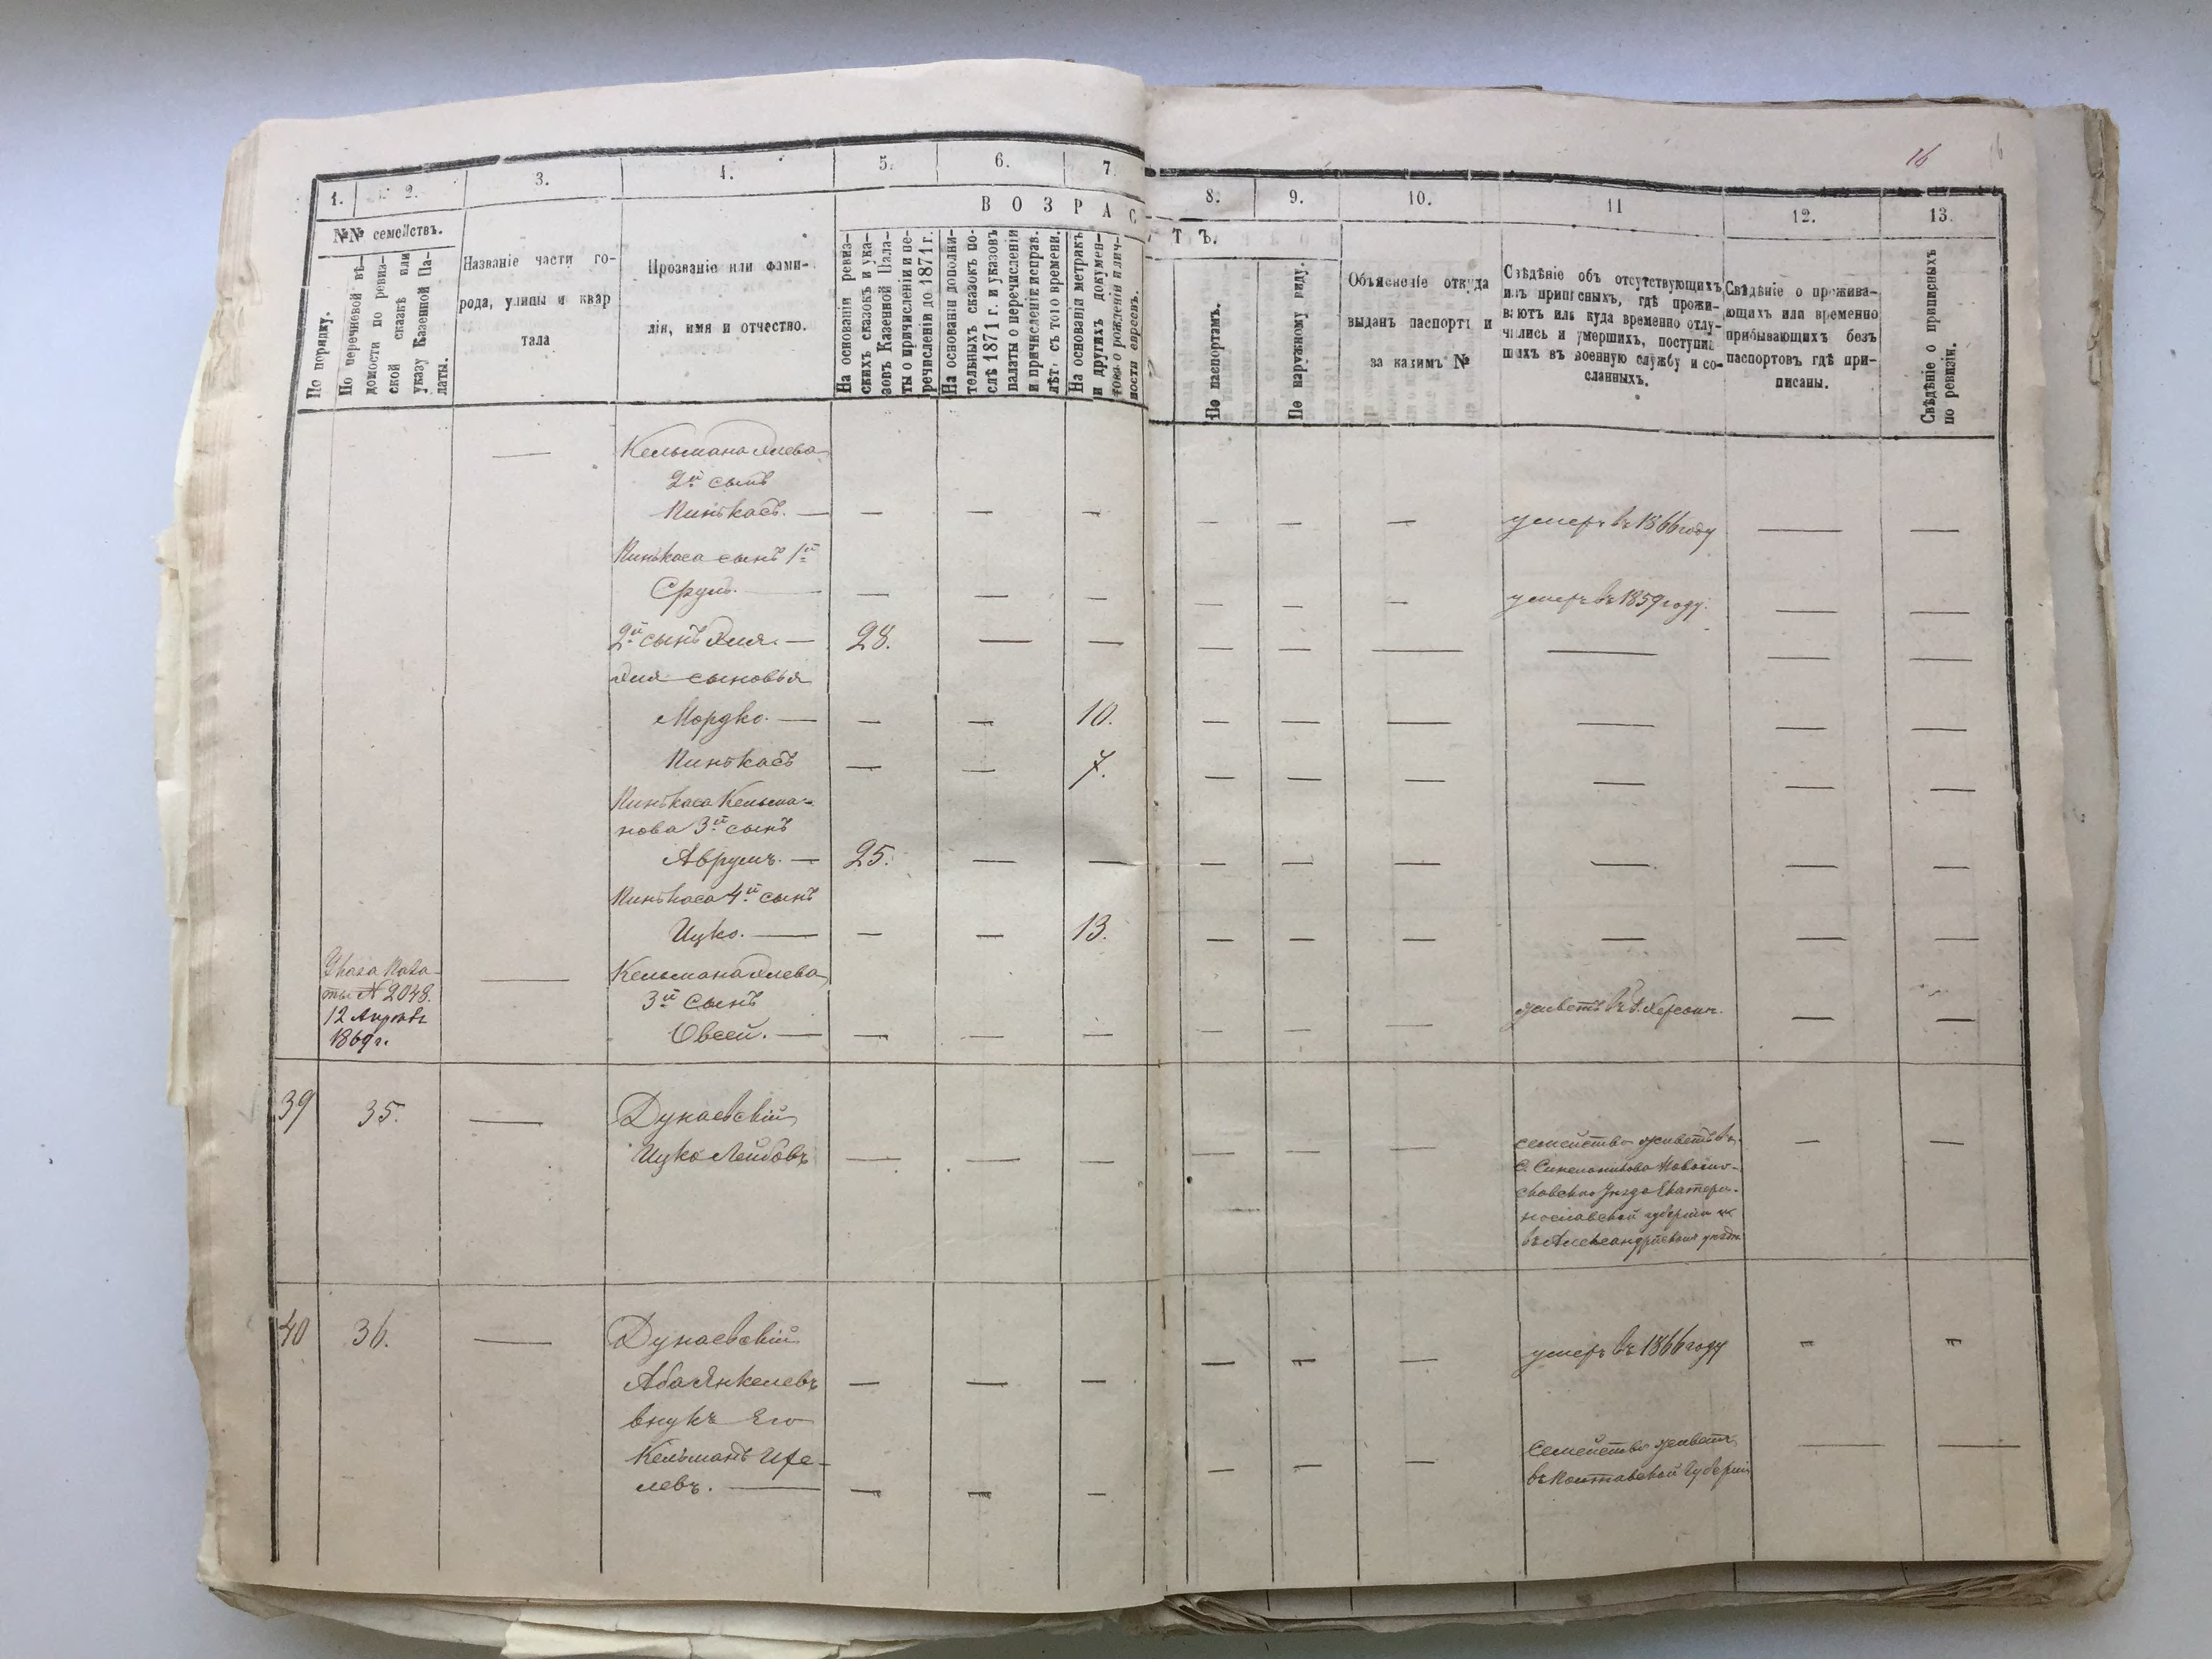 16
1. 2. 3. 4. 5. 6. 7. 8. 9. 10. 11 12. 13.
№№ семействъ.
ВОЗРАС
ТЪ.
По порядку.
По перечневой вѣ-
домости по ревиз-
ской сказкѣ или
указу Казенной Па-
латы.
Названіе части го-
рода, улицы и квар
тала
Прозваніе или фами-
лія, имя и отчество.
На основаніи ревиз-
скихъ сказокъ и ука-
зовъ Казенной Пала-
ты о причисленіи и пе-
речисленіи до 1871 г.
На основаніи дополни-
тельныхъ сказокъ по-
слѣ 1871 г. и указовъ
палаты о перечисленіи
и причисленіи исправ.
лѣт. съ того времени.
На основаніи метрикъ
и другихъ докумен-
товъ о рожденіи и лич-
ности евреевъ.
По паспортамъ.
По наружному виду.
Объясненіе откуда
выданъ паспортъ и
за какимъ №
Свѣдѣніе объ отсутствующихъ
изъ приписныхъ, гдѣ прожи-
ваютъ или куда временно отлу-
чились и умершихъ, поступив
шихъ въ военную службу и со-
сланныхъ.
Свѣдѣніе о прожива-
ющихъ или временно
прибывающихъ безъ
паспортовъ гдѣ при-
писаны.
Свѣдѣніе о приписныхъ
по ревизіи.
— Кельмана Элева
2й сынъ
Пинькасъ. — — — — — — — умеръ въ 1866 году — —
Пинькаса сынъ 1й
Сруль. — — — — — — — умеръ въ 1859 году. — —
2й сынъ Эля. — 28. — — — — — — — —
Эля сыновья
Мордко. — — — 10. — — — — — —
Пинькасъ — — 7. — — — — — —
Пинькаса Кельма-
нова 3й сынъ
Аврумъ. — 25. — — — — — — — —
Пинькаса 4й сынъ
Ицко. — — — 13. — — — — — —
Указа Пала-
ты № 2048.
12 Апрѣля
1869 г.
— Кельмана Элева
3й сынъ
Овсей. — — — — — — — живетъ въ г. Херсонѣ. — —
39 35. — Дунаевскій
Ицко Лейбовъ — — — — — — семейство живетъ въ
с. Синельниково Новомо-
сковскаго Уѣзда Екатери-
нославской губерніи и
въ Александрійскомъ уѣздѣ
— —
40 36. — Дунаевскій
Аба Янкелевъ — — — — — — умеръ въ 1866 году — —
внукъ Его
Кельманъ Ице-
левъ. — — — — — — — семейство живетъ
въ Полтавской Губерніи
— —